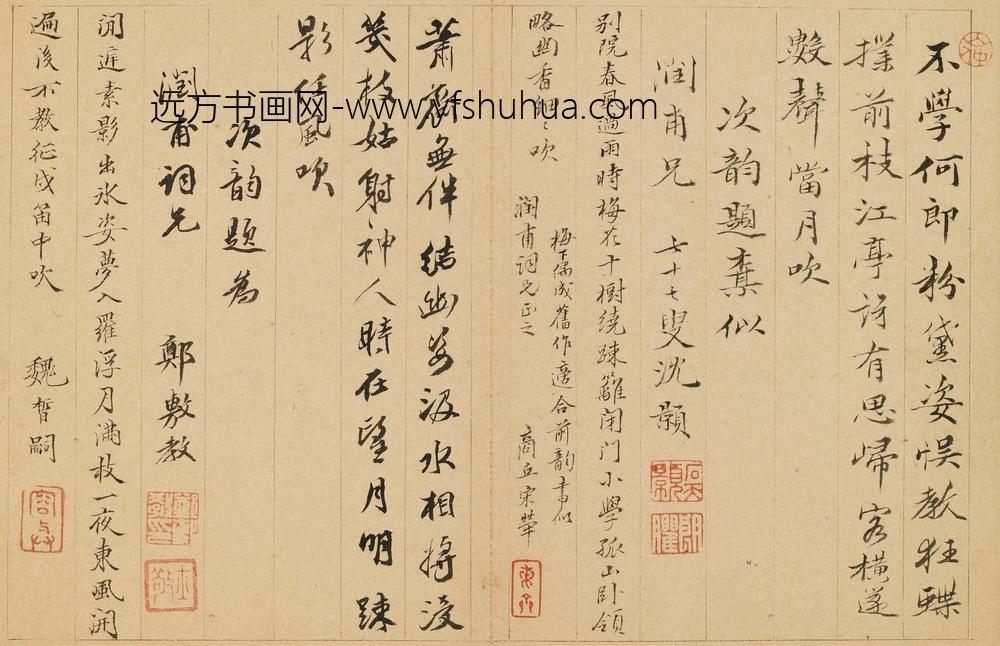 不學何郎粉黛姿悮教狂蝶
撲前枝江亭詩有思歸客橫邃
數聲當月吹
次韵題橐似
潤甫兄 七十七叟沈顥
别院春風過雨時梅花十樹繞疎籬閉门小學孤山卧領
略幽香細々吹
梅下偶成舊作適合前韵書似
潤甫詞兄正之 商丘宋犖
蕭齋無伴結幽姿汲水相將浸
幾枝姑射神人時在望月明踈
影任風吹
次韵題為
潤甫詞兄 鄭敷教
閒庭素影出氷姿夢入羅浮月滿枝一夜東風開
遍後不教征戍笛中吹 魏嗣
选方书画网-www.yfshuhua.com